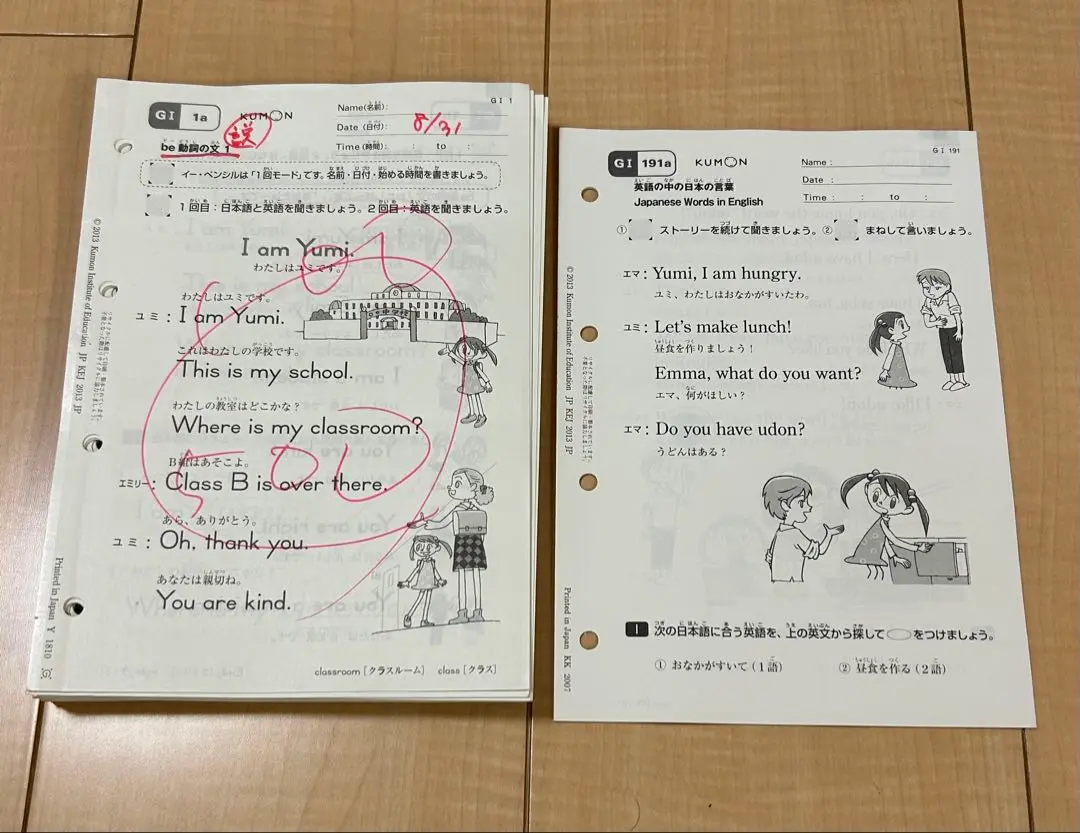 GI 1a
KUMON
GI 1
Name(名前):
Date (日付): 8/31
Time (時間): : to :
be動詞の文 1
イー・ペンシルは「1回モード」です。名前・日付・始める時間を書きましょう。
1回目:日本語と英語を聞きましょう。2回目:英語を聞きましょう。
I am Yumi.
わたしはユミです。
わたしはユミです。
ユミ: I am Yumi.
これはわたしの学校です。
This is my school.
わたしの教室はどこかな?
Where is my classroom?
B組はあそこよ。
エミリー: Class B is over there.
あら、ありがとう。
ユミ: Oh, thank you.
あなたは親切ね。
You are kind.
classroom [クラスルーム] class [クラス]
© 2013 Kumon Institute of Education JP KEJ 2013 JP
Printed in Japan Y 1810
GI 191a
KUMON
GI 191
Name :
Date :
Time : : to :
英語の中の日本の言葉
Japanese Words in English
① ストーリーを続けて聞きましょう。② まねして言いましょう。
エマ: Yumi, I am hungry.
ユミ、わたしはおなかがすいたわ。
ユミ: Let's make lunch!
昼食を作りましょう!
Emma, what do you want?
エマ、何がほしい?
エマ: Do you have udon?
うどんはある?
1 次の日本語に合う英語を、上の英文から探して◯をつけましょう。
① おなかがすいて(1語) ② 昼食を作る(2語)
© 2013 Kumon Institute of Education JP KEJ 2013 JP
Printed in Japan KK 2007